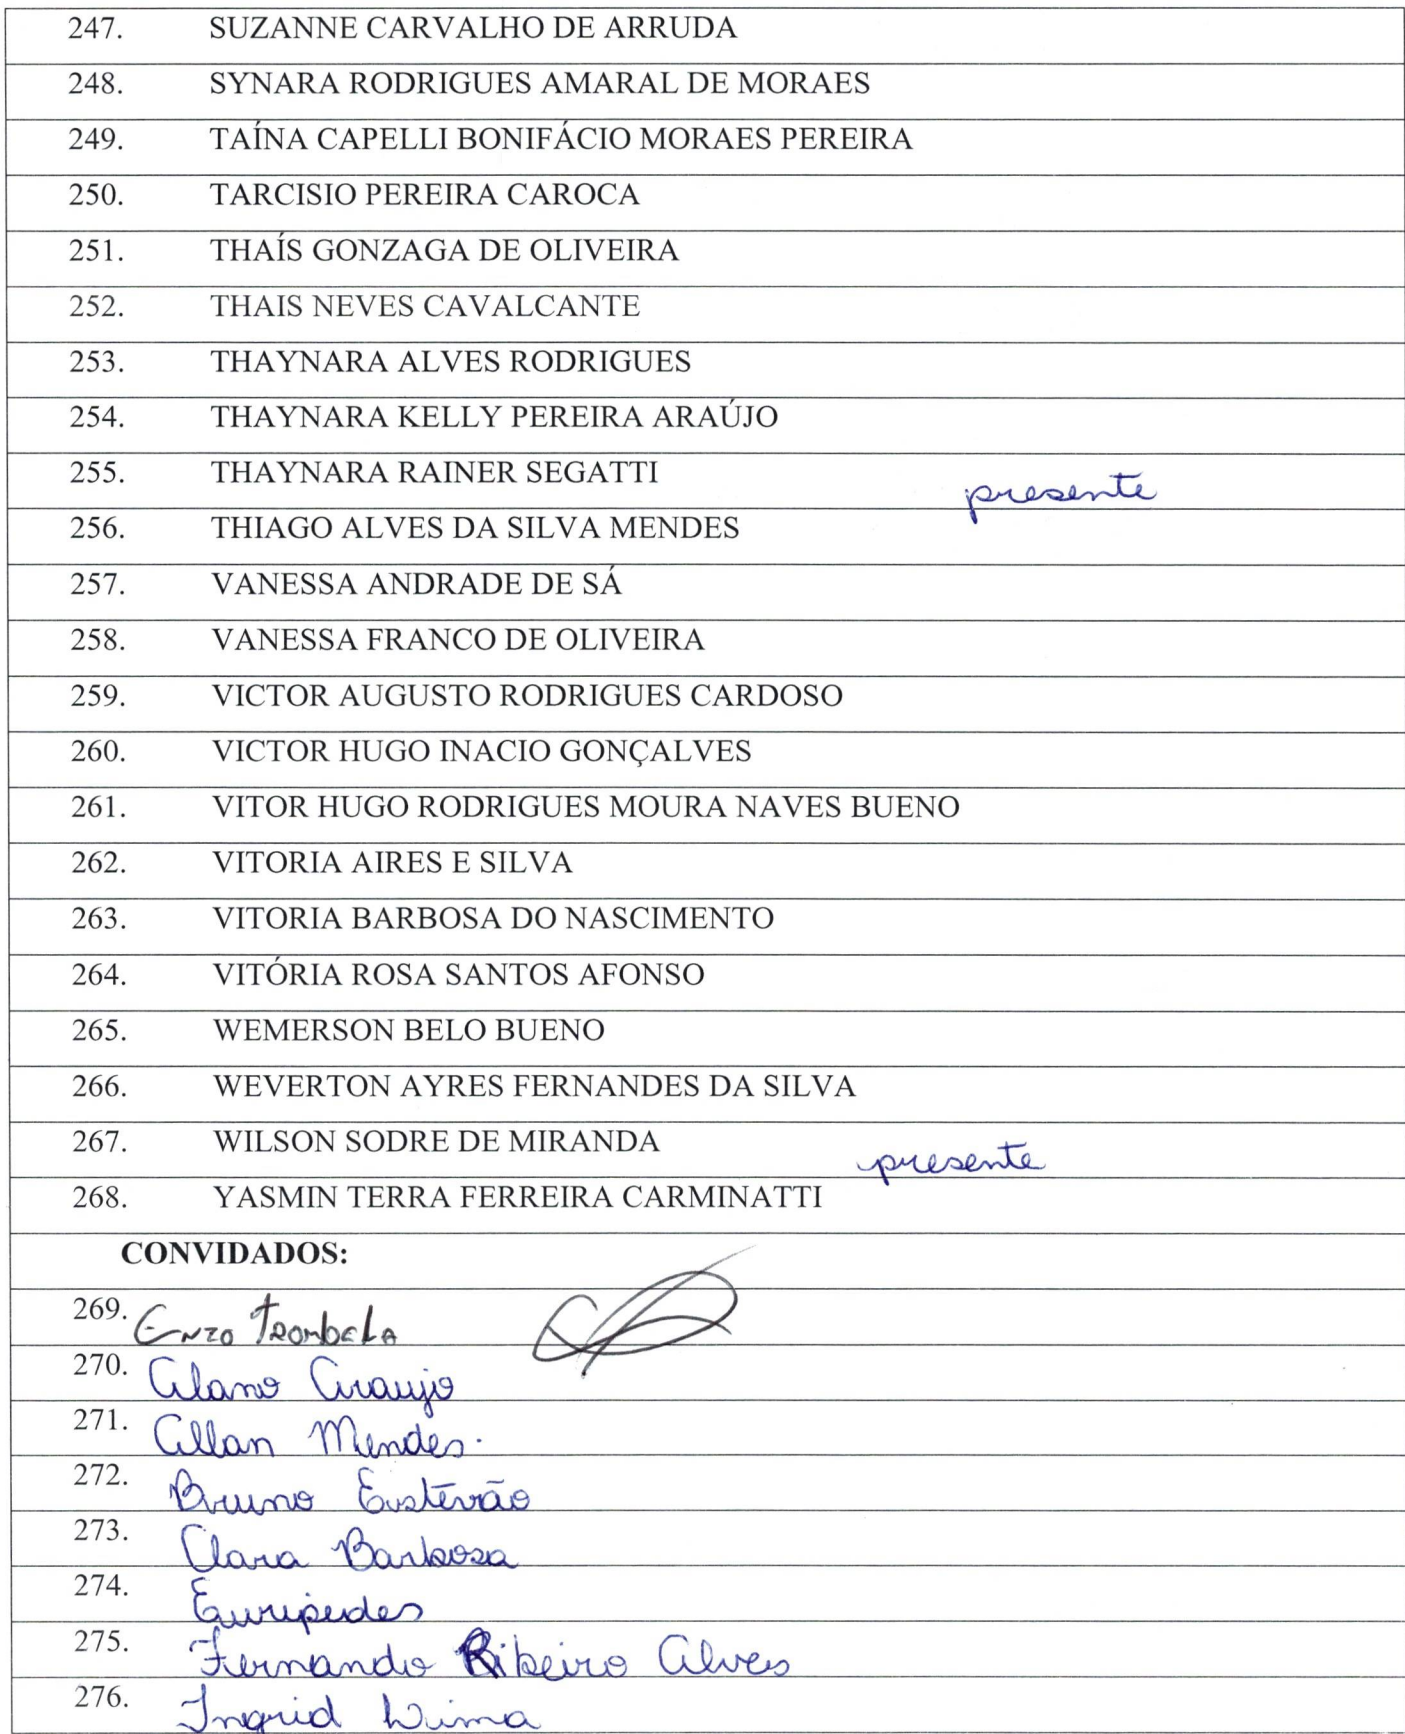 247. SUZANNE CARVALHO DE ARRUDA
248. SYNARA RODRIGUES AMARAL DE MORAES
249. TAÍNA CAPELLI BONIFÁCIO MORAES PEREIRA
250. TARCISIO PEREIRA CAROCA
251. THAÍS GONZAGA DE OLIVEIRA
252. THAIS NEVES CAVALCANTE
253. THAYNARA ALVES RODRIGUES
254. THAYNARA KELLY PEREIRA ARAÚJO
255. THAYNARA RAINER SEGATTI presente
256. THIAGO ALVES DA SILVA MENDES
257. VANESSA ANDRADE DE SÁ
258. VANESSA FRANCO DE OLIVEIRA
259. VICTOR AUGUSTO RODRIGUES CARDOSO
260. VICTOR HUGO INACIO GONÇALVES
261. VITOR HUGO RODRIGUES MOURA NAVES BUENO
262. VITORIA AIRES E SILVA
263. VITORIA BARBOSA DO NASCIMENTO
264. VITÓRIA ROSA SANTOS AFONSO
265. WEMERSON BELO BUENO
266. WEVERTON AYRES FERNANDES DA SILVA
267. WILSON SODRE DE MIRANDA presente
268. YASMIN TERRA FERREIRA CARMINATTI
CONVIDADOS:
269. Enzo Trombela
270. Alano Araujo
271. Allan Mendes.
272. Bruno Estevão
273. Clara Barbosa
274. Euripedes
275. Fernando Ribeiro Alves
276. Ingrid Lima